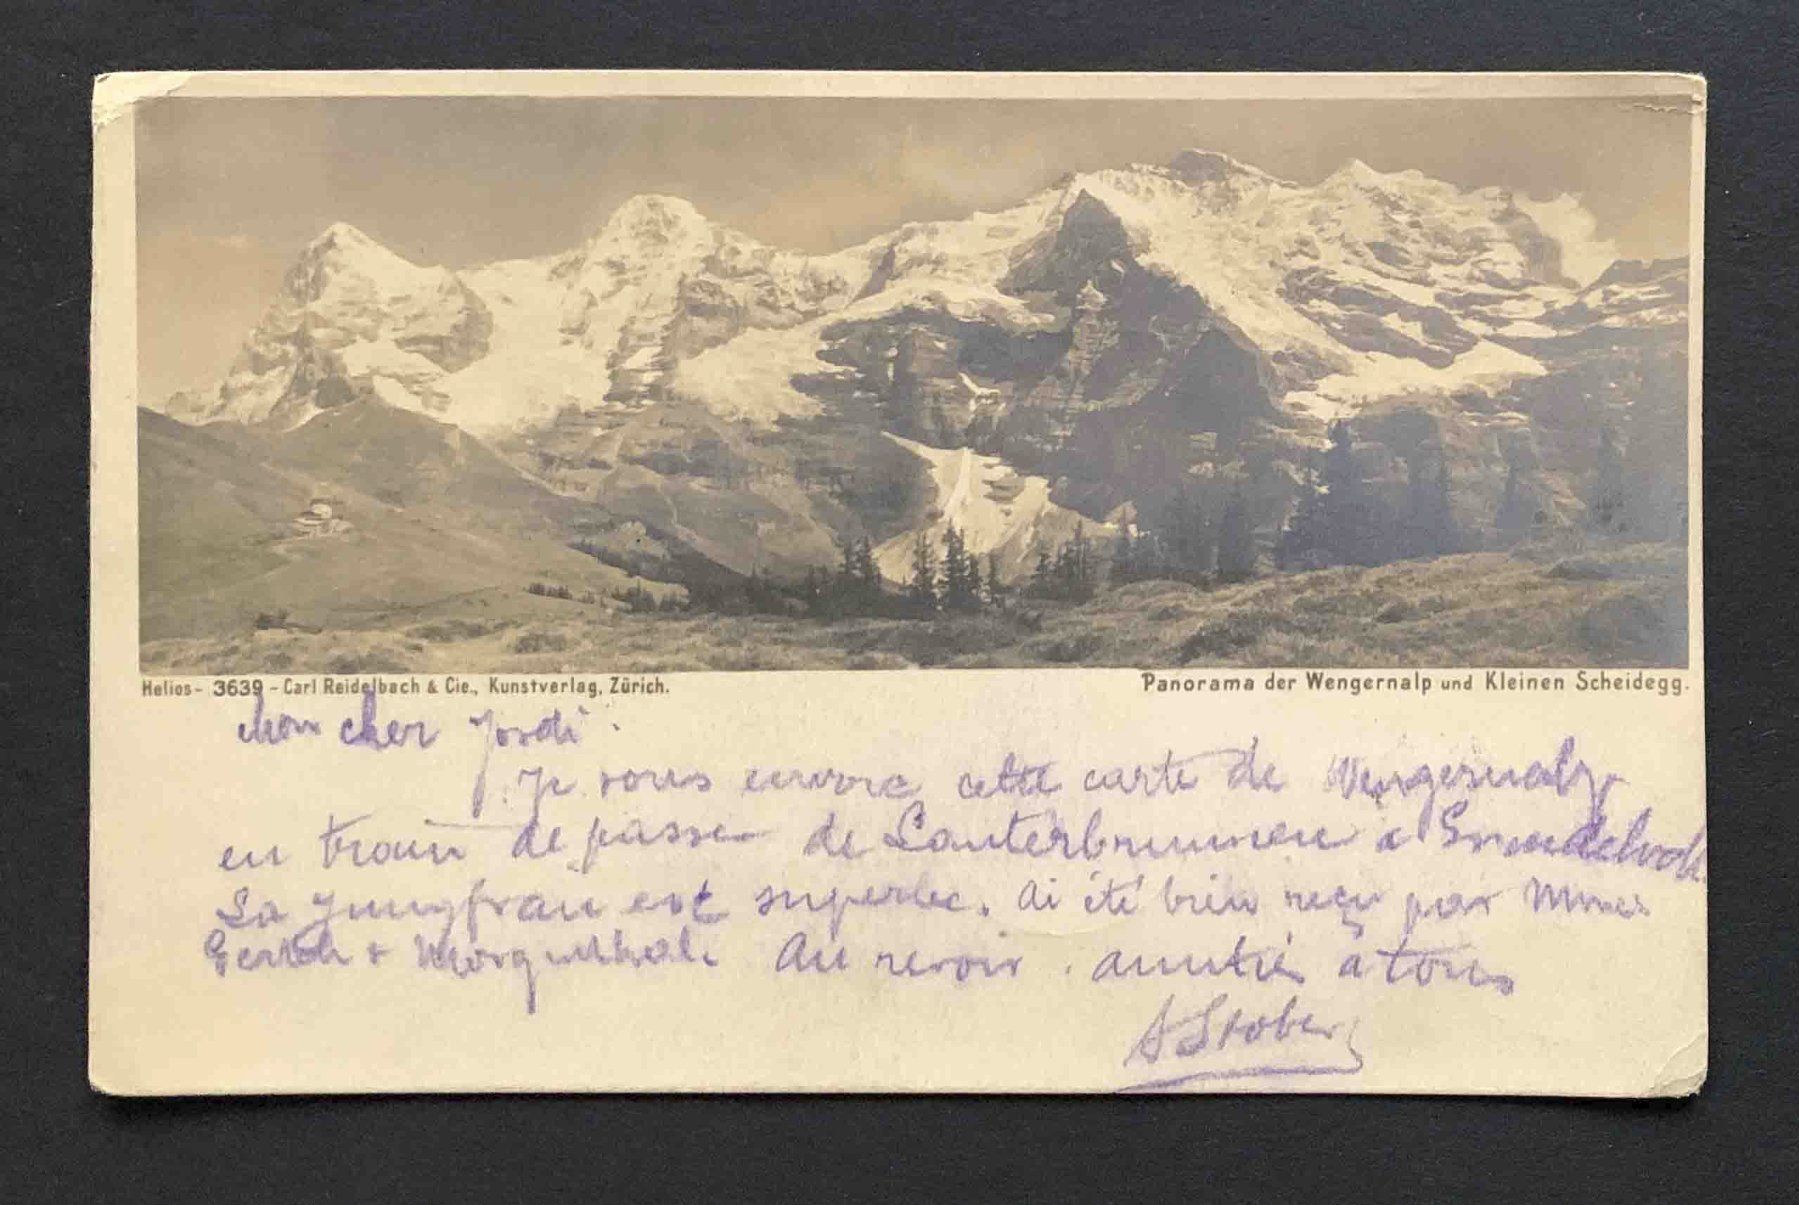 Helios - 3639 - Carl Reidelbach & Cie., Kunstverlag, Zürich.
Panorama der Wengernalp und Kleinen Scheidegg.
Mon cher Jordi
Je vous envoie cette carte de Wengernalp
en train de passer de Lauterbrunnen à Grindelwald.
La Jungfrau est superbe. Ai été bien reçu par Mmes
& Au revoir. amitiés à tous
A Stober